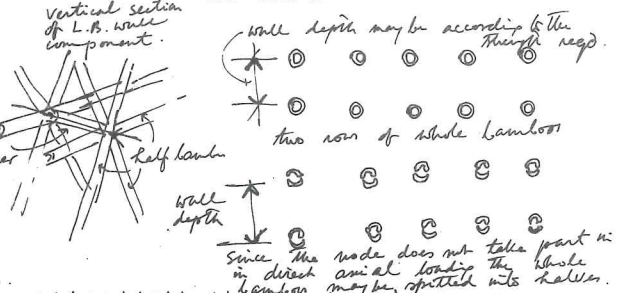 vertical section
of L.B. wall
component.
wall depth may be according to the
strength reqd.
two rows of whole bamboos
half bambu
wall
depth
Since, the node does not take part in
in direct axial loading the whole
bamboo may be splitted into halves.